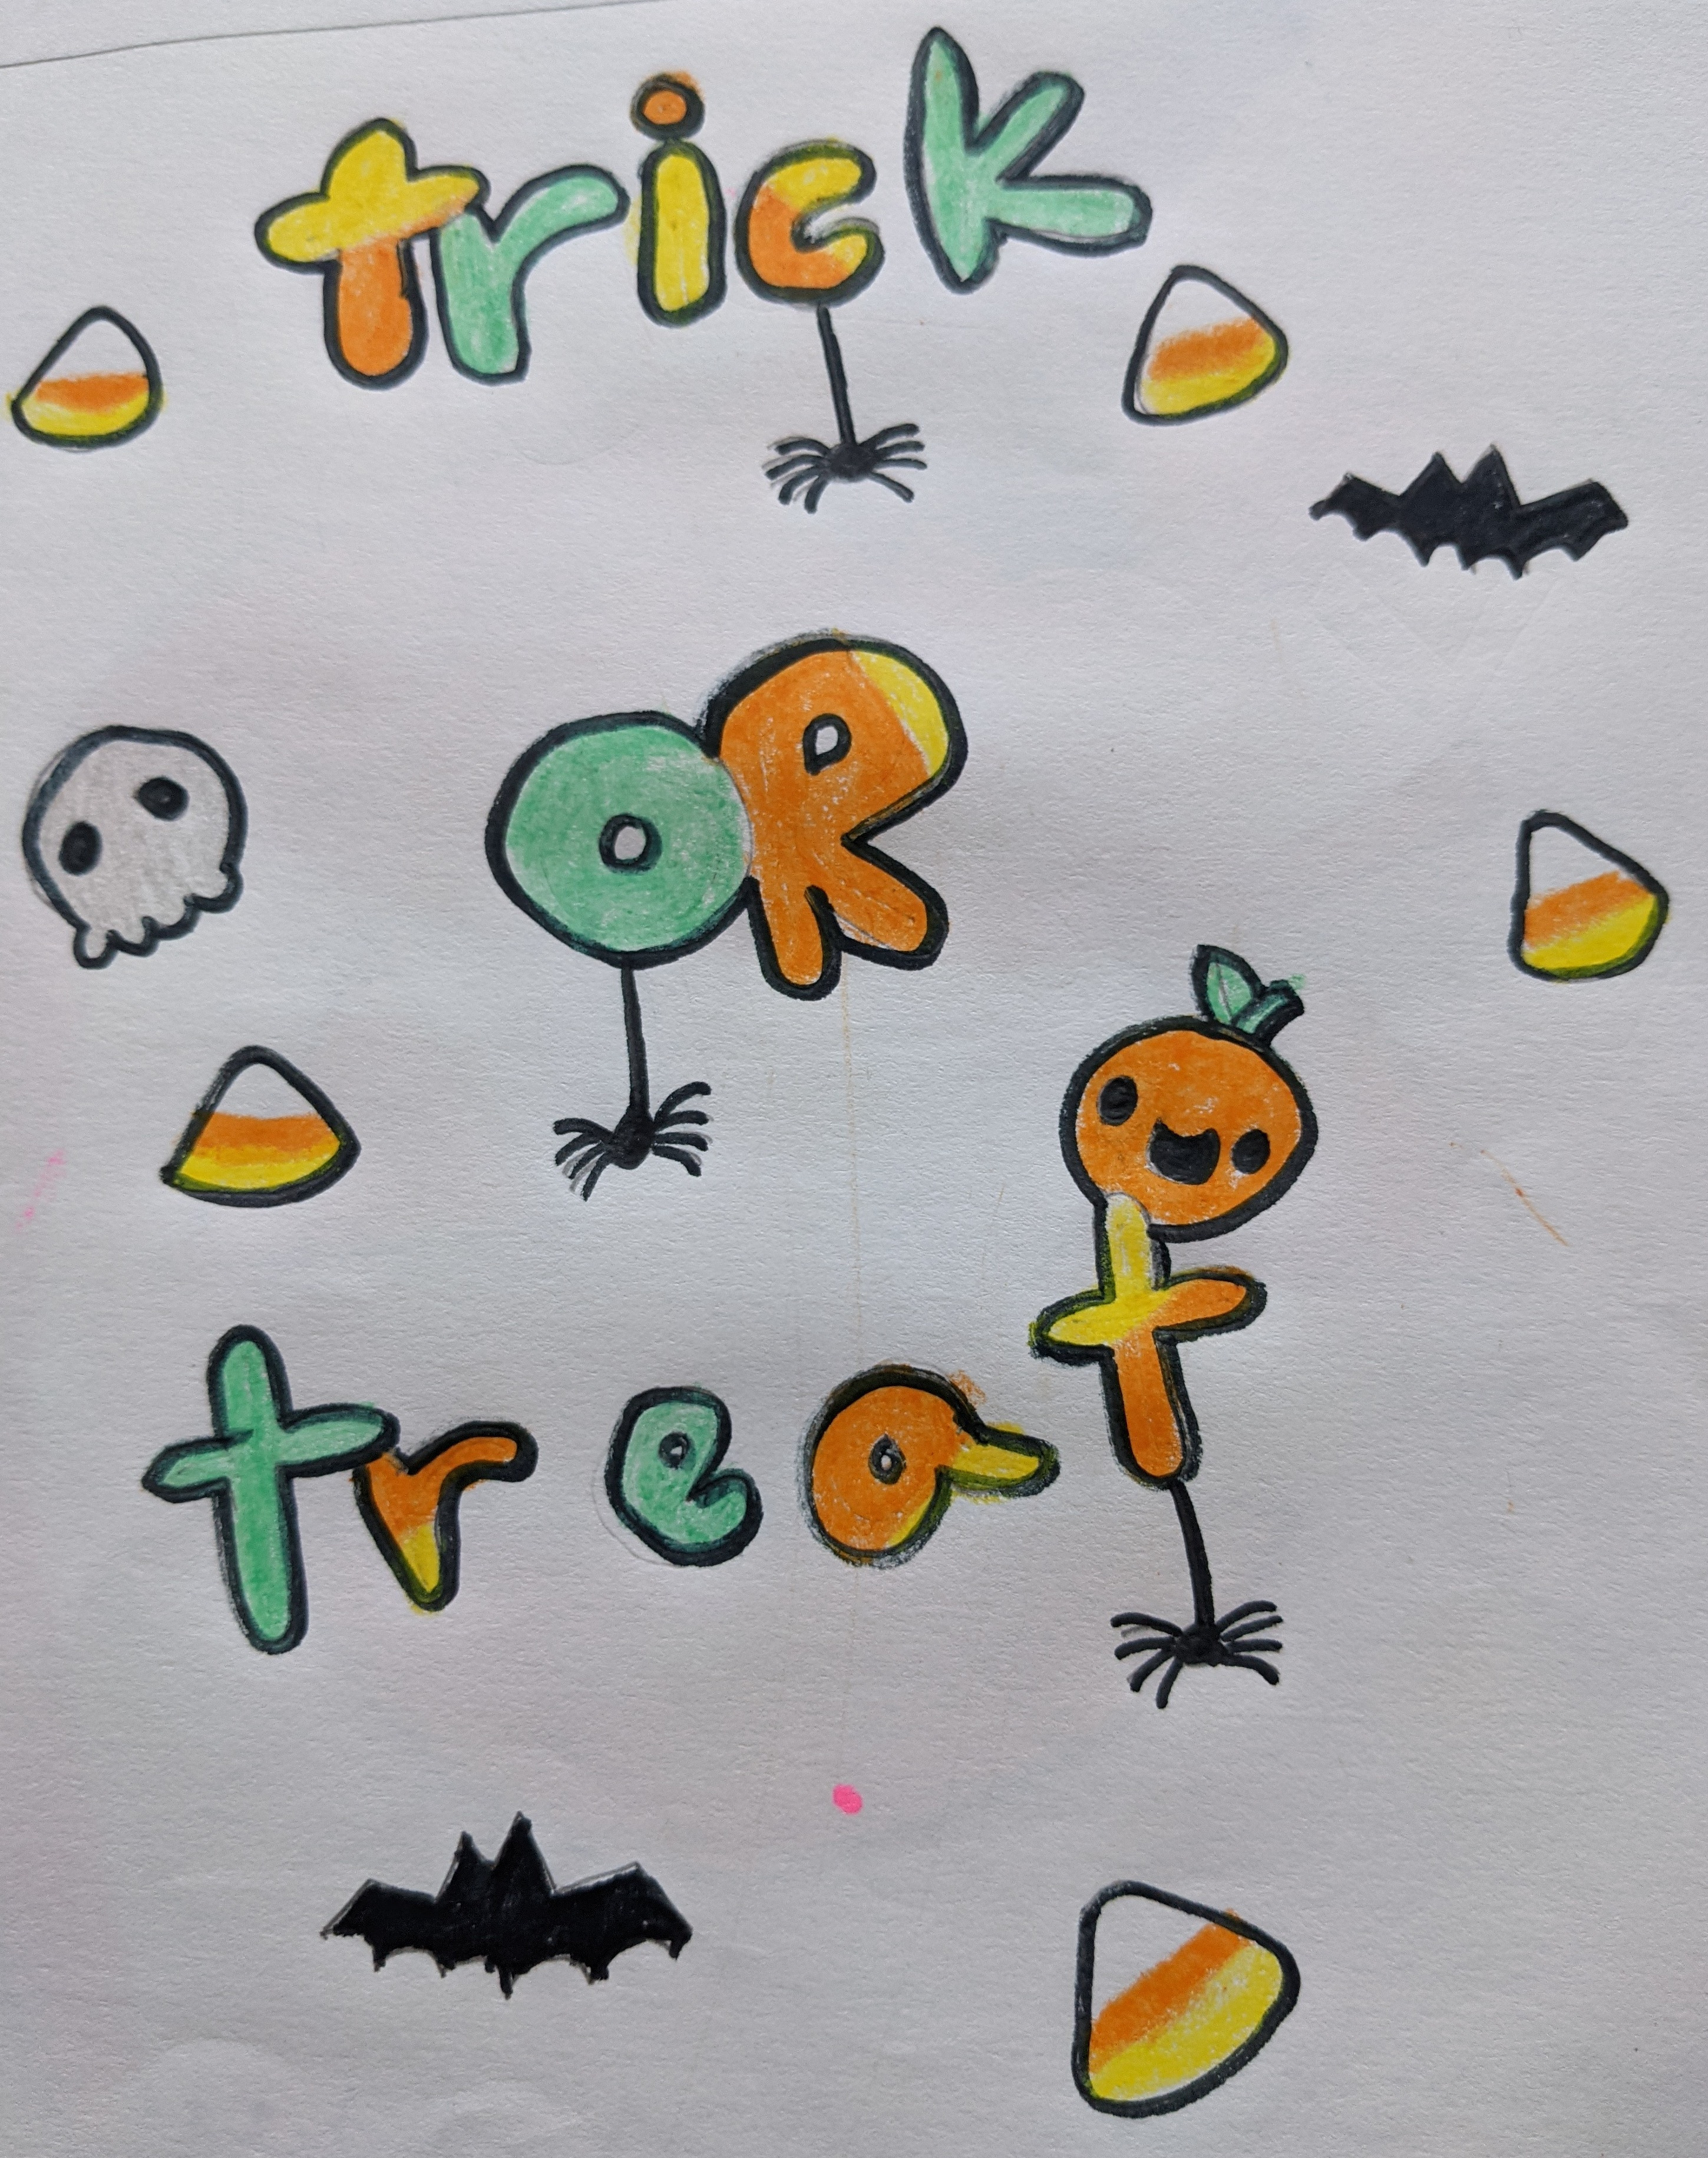 trick
OR
treat